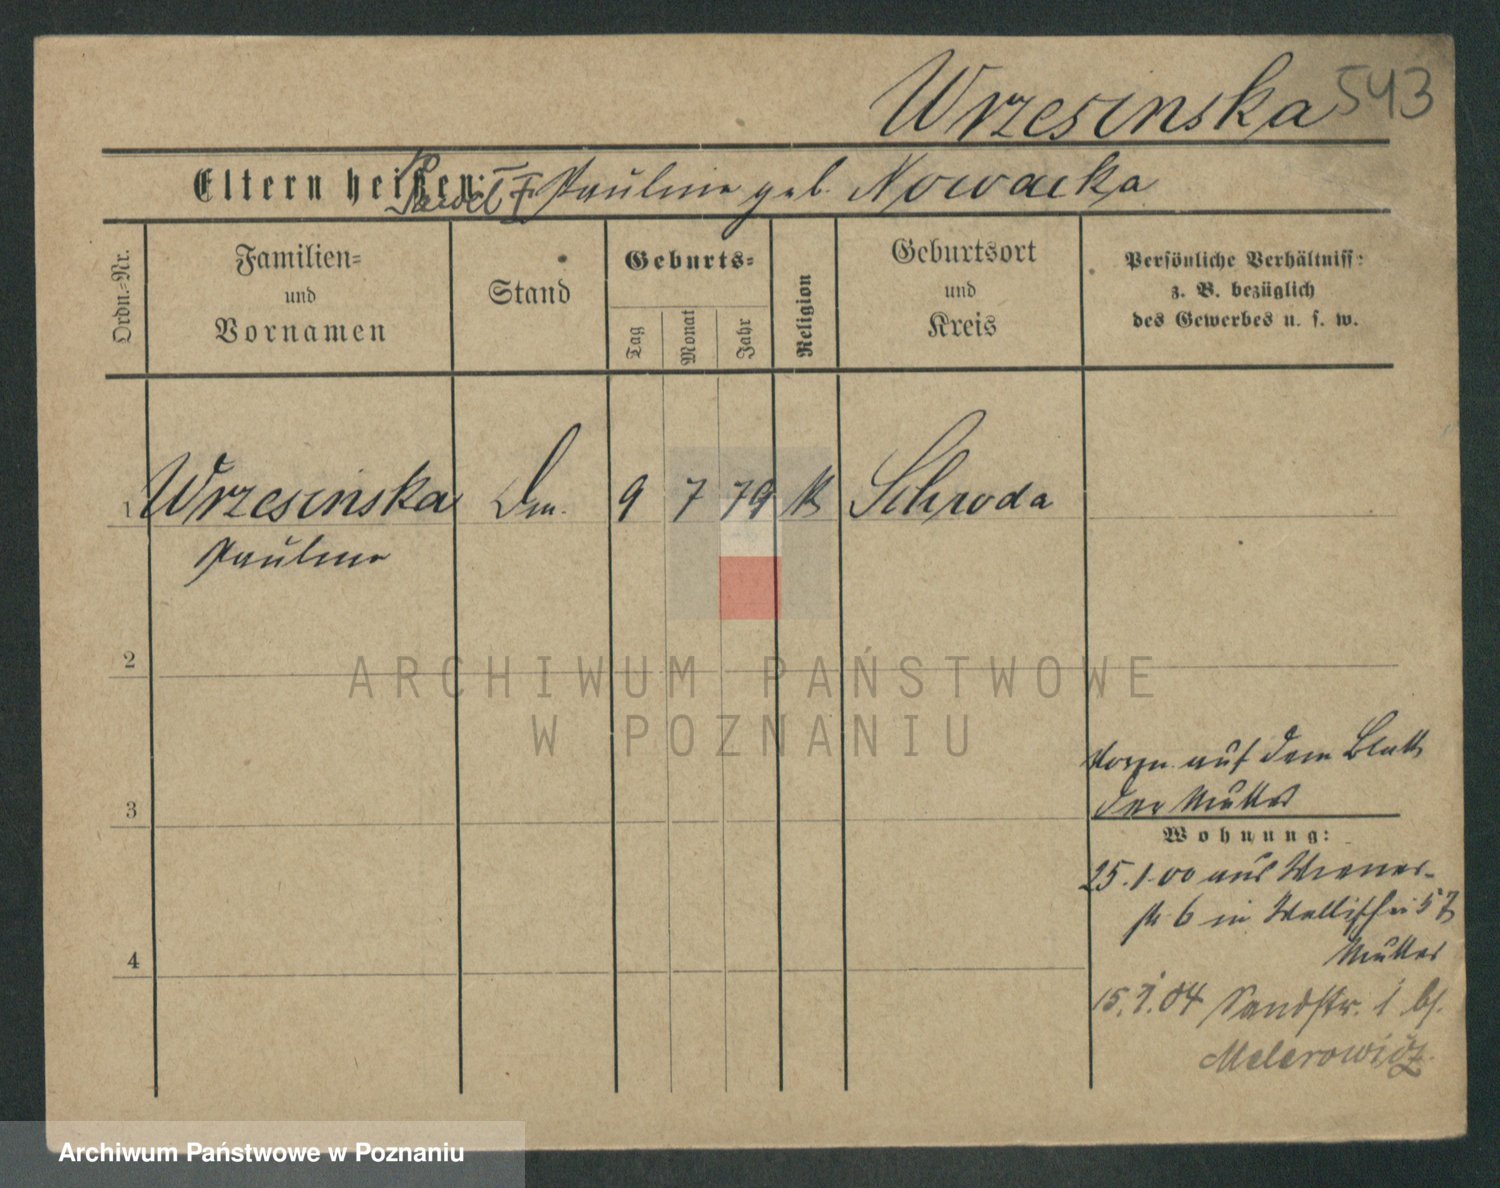 Wrzesinska 543
Eltern heißen: Pauline geb. Nowacka
Ordn.=Nr.
Familien=
und
Vornamen
Stand
Geburts=
Tag
Monat
Jahr
Religion
Geburtsort
und
Kreis
Persönliche Verhältniss:
z. B. bezüglich
des Gewerbes u. s. w.
1 Wrzesinska 9 7 79 K Schroda
Pauline
2
ARCHIWUM PAŃSTWOWE
W POZNANIU
auf dem Blatt
der Mutter
3
Wohnung:
25.1.00 aus
6 in Wallischei 57
Mutter
4
15.1.04 Sandstr. 1 bei
Melerowicz.
Archiwum Państwowe w Poznaniu